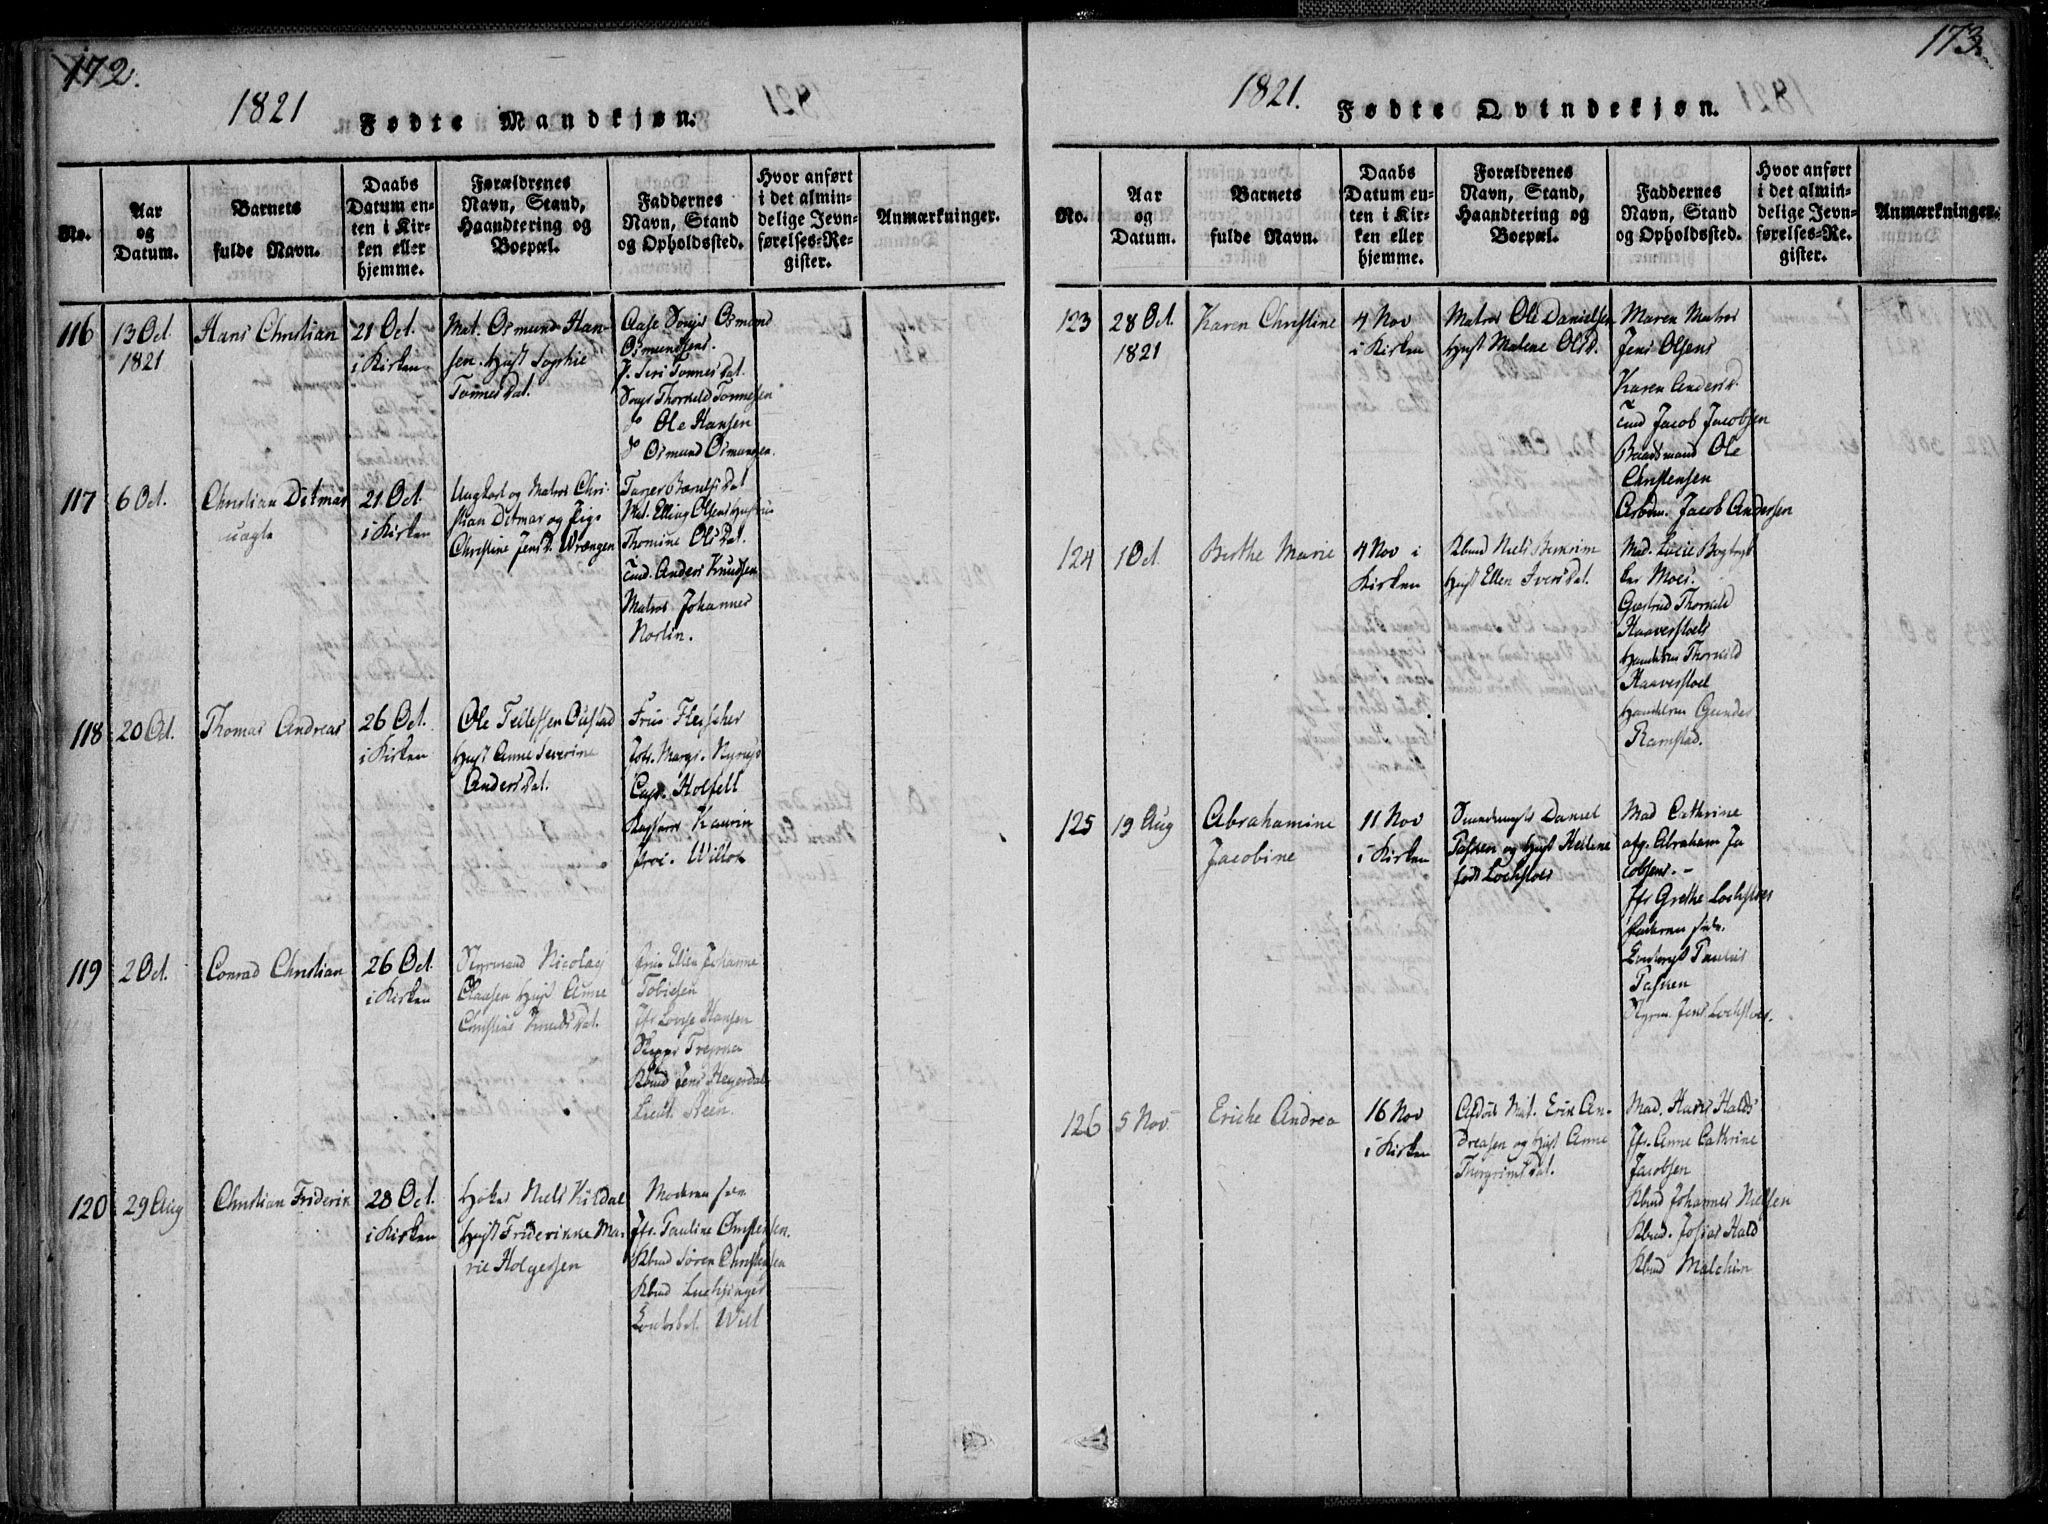 172.
1821
Fødte Mandkjøn.
No.
Aar
og
Datum.
Barnets
fulde Navn.
Daabs
Datum en-
ten i Kir-
ken eller
hjemme.
Forældrenes
Navn, Stand,
Haandtering og
Boepæl.
Faddernes
Navn, Stand
og Opholdssted.
Hvor anført
i det almin-
delige Jevn-
førelses-Re-
gister.
Anmærkninger.
116
13 Oct.
1821
Hans Christian
21 Oct.
i Kirken
Mat. Osmund Han-
sen. Hust Sophie
Tønnes Dat.
Aase Osmund
Osmundsens.
P. Siri Tønnes Dat.
Thorkild Tønnesen
Ole Hansen
Osmund Osmunsen.
117
6 Oct.
Christian Ditmar
uægte
21 Oct.
i Kirken
Ungkarl og Matros Chri-
stian Ditmar og Pige
Christine Jensd. Vrængen
Dat
Mat. Elling Olsens Hustrue
Thomine Ols Dat.
Anders Knudsen
Matros Johannes
Norlin.
118
20 Oct.
Thomas Andreas
26 Oct.
i Kirken
Ole Tellefsen Oustad
Hust Anne Severine
Anders Dat.
Frue Fleischer
Jfr. Margr. Nyrup
Capt. Holfelt
Kaurin
Proc. Willoch
119
2 Oct.
Conrad Christian
26 Oct.
i Kirken
Styrmand Nicolay
Claasen Hust Anne
Christine Knuds Dat.
Frue Ellen Johanne
Tobiesen
Jfr Lovise Hansen
Skipper
Kbmd Jens Heyerdal
Lieut. Steen.
120
29 Aug
Christian Friderik
28 Oct.
i Kirken
Høker Niels Kildal
Hust Friderikke Ma-
rie Holgersen
Moderen selv
Jfr. Pauline Christensen.
Kbmd Søren Christensen
Kbmd Luchsinger
Will
173.
1821.
Fødte Qvindekjøn.
No.
Aar
og
Datum.
Barnets
fulde Navn.
Daabs
Datum en-
ten i Kir-
ken eller
hjemme.
Forældrenes
Navn, Stand,
Haandtering og
Boepæl.
Faddernes
Navn, Stand
og Opholdssted.
Hvor anført
i det almin-
delige Jevn-
førelses-Re-
gister.
Anmærkninger.
123
28 Oct.
1821
Karen Christine
4 Nov
i Kirken
Matros Ole Danielsen
Hust Malene Olsd.
Maren Matros
Jens Olsens
Karen Andersd.
Jacob Jacobsen
Baadsmand Ole
Christensen
Arbdm. Jacob Andersen
124
1 Oct.
Berthe Marie
4 Nov i
Kirken
Kbmd Niels
Hust Ellen Ivers Dat.
Mad. Lucie Bogtryk
ker Moes.
Giertrud Thorkild
Haaverstoels
Thorkild
Haaverstoel
Gunder
Ramstad.
125
19 Aug
Abrahamine
Jacobine
11 Nov
i Kirken
Daniel
og Hust Helene
født Lochstoer
Mad Cathrine
afg. Abraham Ja
cobsens. -
Jfr Grethe Lochstoer
Faderen selv.
Paulus
Styrm. Jens Lochstoer.
126
5 Nov.
Eriche Andrea
16 Nov
i Kirken
Afdøde Mat. Erik An-
dreasen og Hust Anne
Thorgrims Dat.
Mad. Hans Halds
Jfr. Anne Cathrine
Jacobsen
Kbmd Johannes Nielsen
Kbmd. Josias Hald
Kbmd Malchin